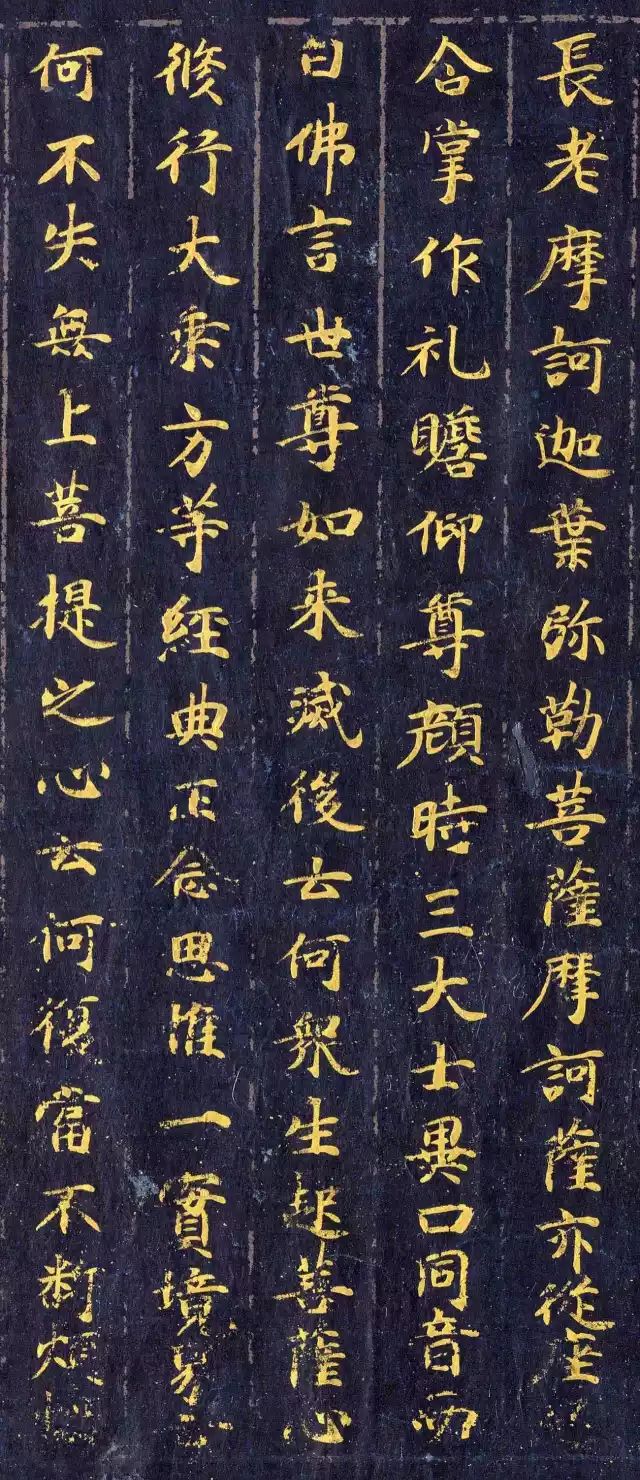 長老摩訶迦葉弥勒菩薩摩訶薩亦從座
合掌作礼瞻仰尊顔時三大士異口同音而
白佛言世尊如来滅後云何衆生起菩薩心
修行大乗方等經典正念思惟一實境界云
何不失無上菩提之心云何復當不断煩惱